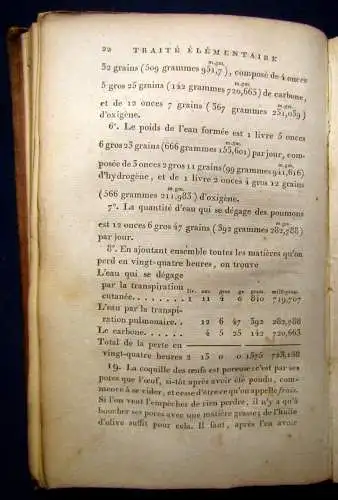 22 TRAITÉ ÉLÉMENTAIRE
m.gm.
32 grains (509 grammes 951,7), composé de 4 onces
m.gm.
5 gros 25 grains (142 grammes 720,663) de carbone,
m.gm.
et de 12 onces 7 grains (367 grammes 231,039)
d'oxigène.
6°. Le poids de l'eau formée est 1 livre 5 onces
m.gm.
6 gros 23 grains (666 grammes 153,601) par jour, com-
m.gm.
posée de 3 onces 2 gros 11 grains (99 grammes 941,616)
d'hydrogène, et de 1 livre 2 onces 4 gros 12 grains
m.gm.
(566 grammes 211,985) d'oxigène.
7°. La quantité d'eau qui se dégage des poumons
m.gm.
est 12 onces 6 gros 47 grains (392 grammes 282,788)
par jour.
8°. En ajoutant ensemble toutes les matières qu'on
perd en vingt-quatre heures, on trouve
L'eau qui se dégage
par la transpiration liv. onc. gros gr. gram. millegram.
cutanée........ 1 11 2 6 840 719,707
L'eau par la transpi-
ration pulmonaire.. 12 6 47 392 282,788
Le carbone....... 4 5 25 142 720,663
Total de la perte en
vingt-quatre heures 2 13 0 0 1375 723,158
19. La coquille des œufs est poreuse: c'est par ses
pores que l'œuf, si-tôt après avoir été pondu, com-
mence à se vider, et cesse d'être ce qu'on appelle frais.
Si l'on veut l'empêcher de rien perdre, il n'y a qu'à
boucher ses pores avec une matière grasse; de l'huile
d'olive suffit pour cela. Il faut, après l'en avoir